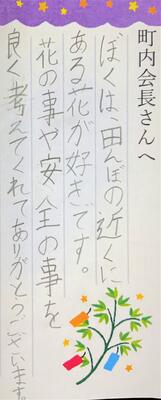 町内会長さんへ
ぼくは、田んぼの近くに
ある花が好きです。
花の事や安全の事を
良く考えてくれてありがとうございます。